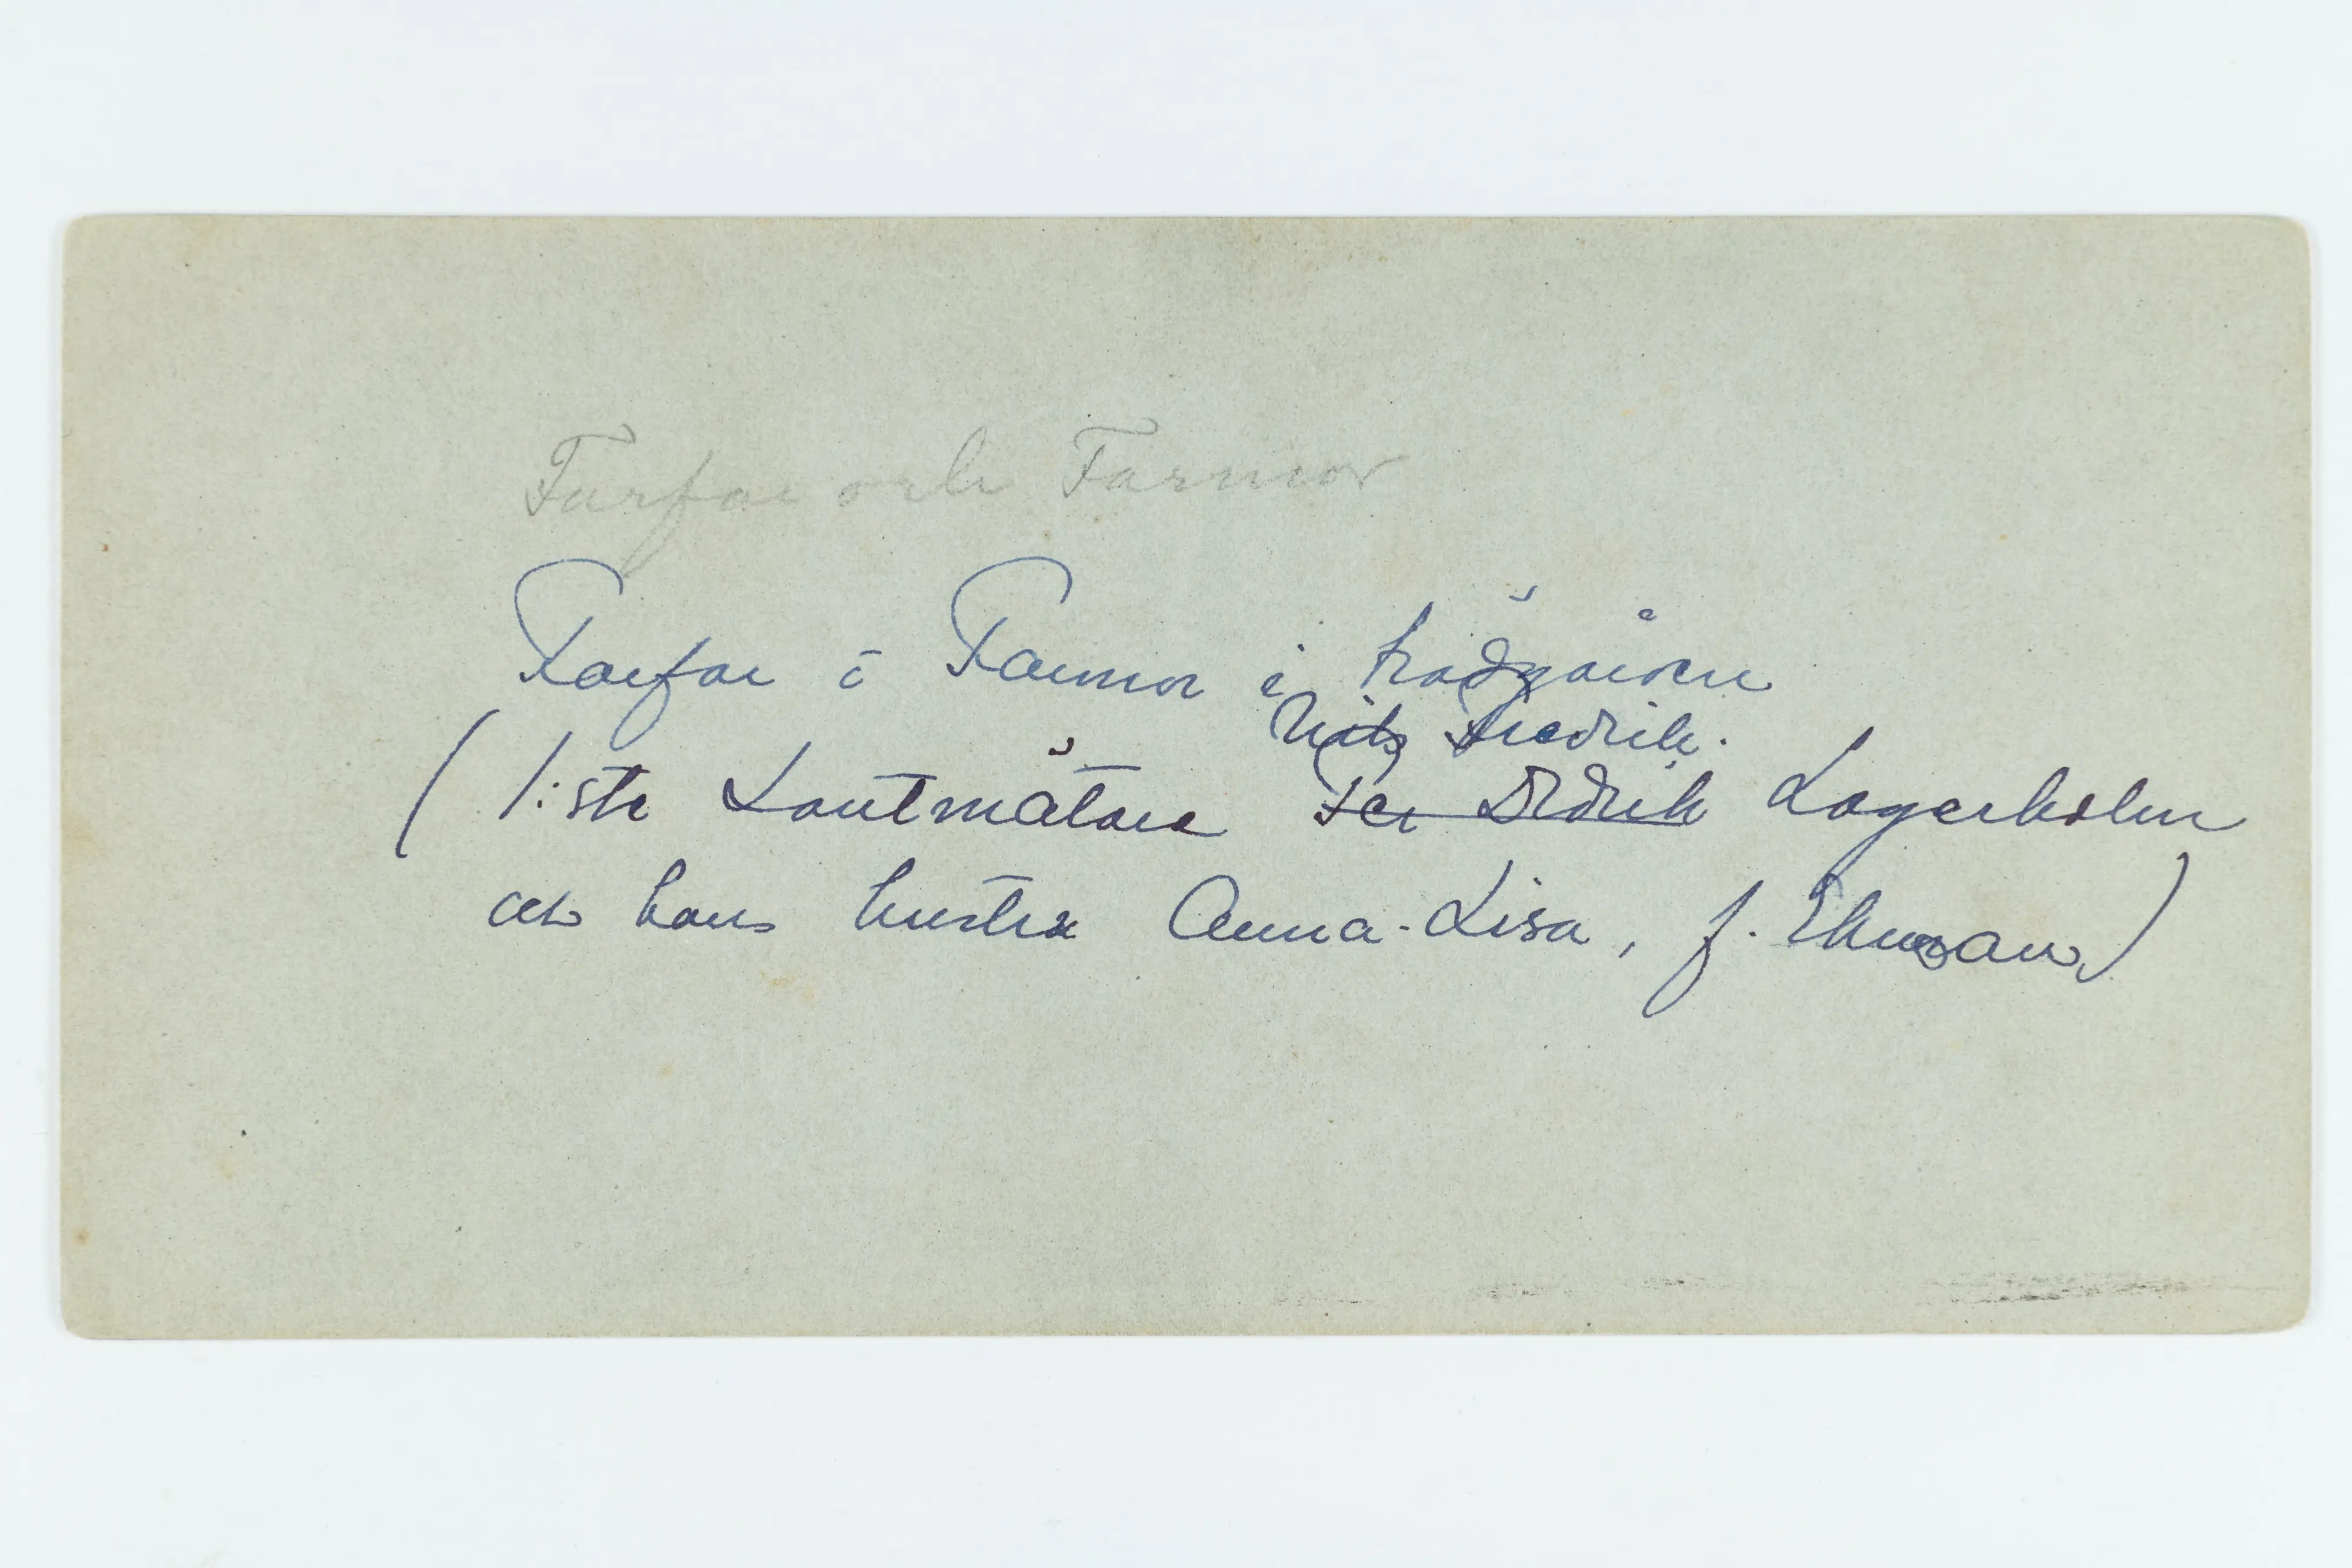 Farfar och Farmor
Farfar o Farmor i trädgården
Nils Fredrik.
( 1:ste Lantmätare Per Didrik Lagerholm
och hans hustru Anna-Lisa, f. Ekman)